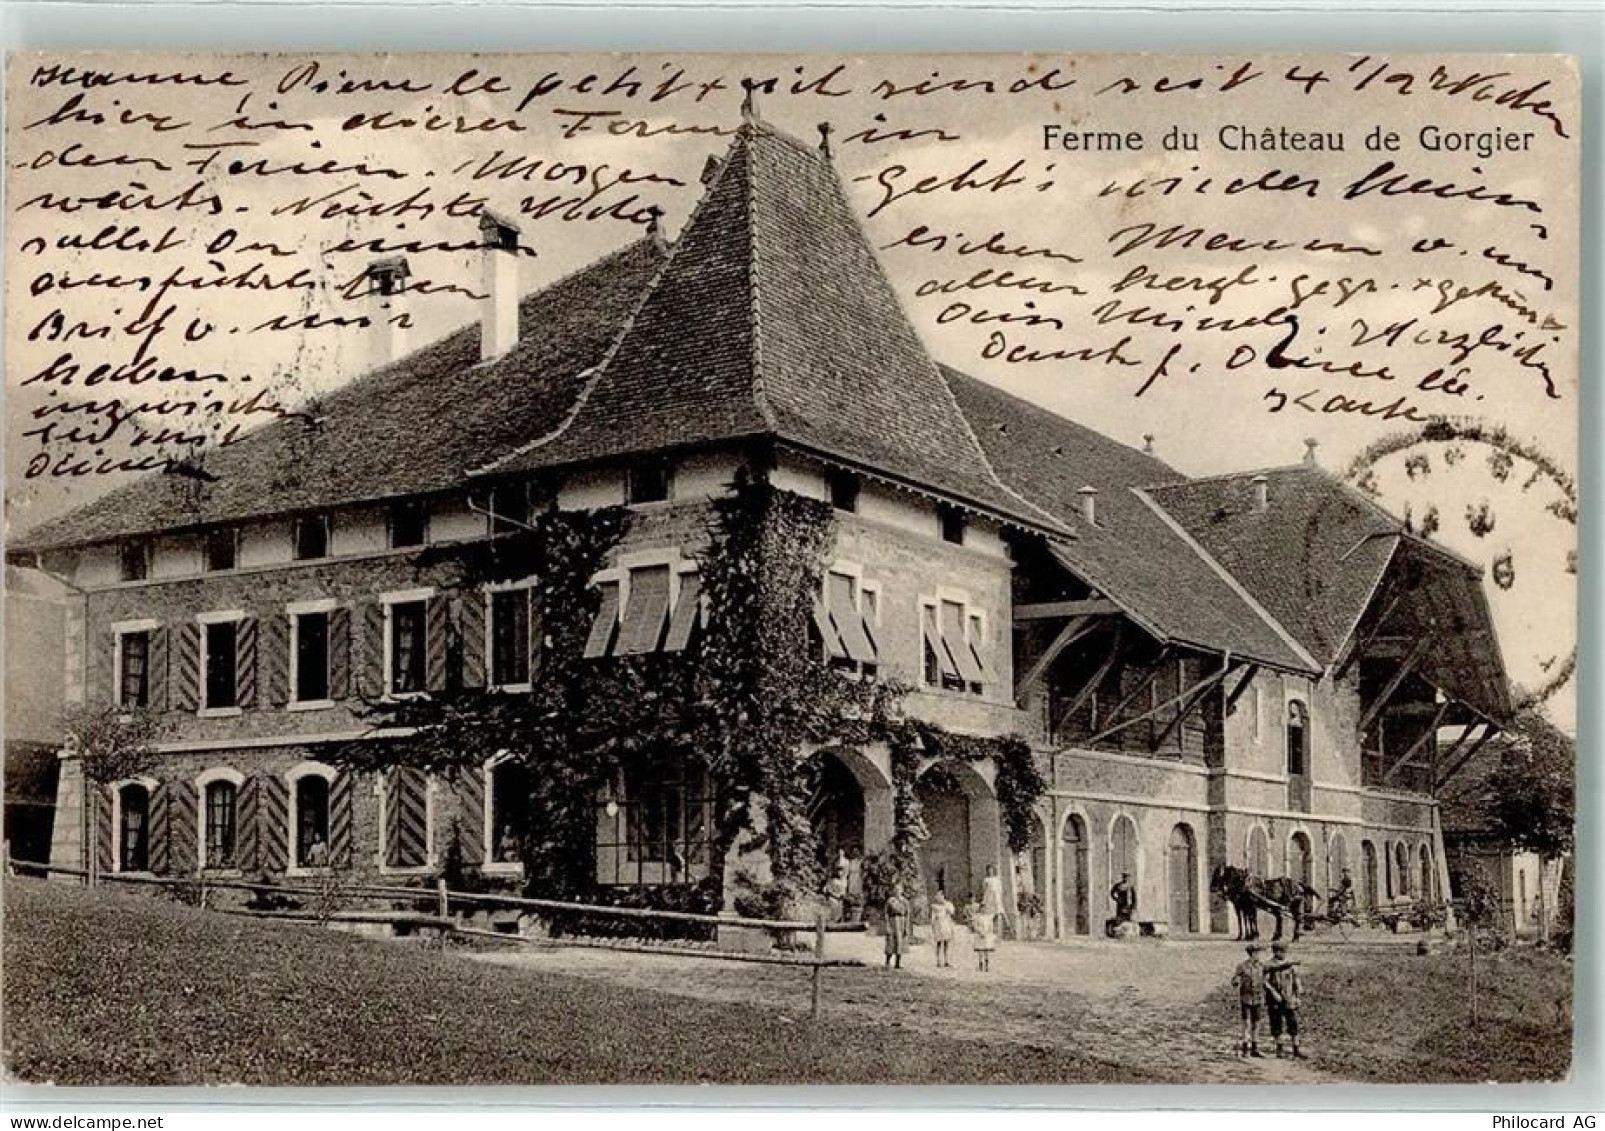 Ferme du Château de Gorgier
Pierre le petit + ich sind seit 4 1/2 Wochen
hier in dieser Ferme in
den Ferien. Morgen geht's wieder heim
wärts. Nächste Woche
sollst Du einen
ausführlichen
Brief v. mir
haben.
inzwischen
sei mit
Deinem
lieben Mann v. uns
allen herzl. gegr. + geküsst
Dein Herzlichen
Dank f. Deine lb.
Karte
Philocard AG